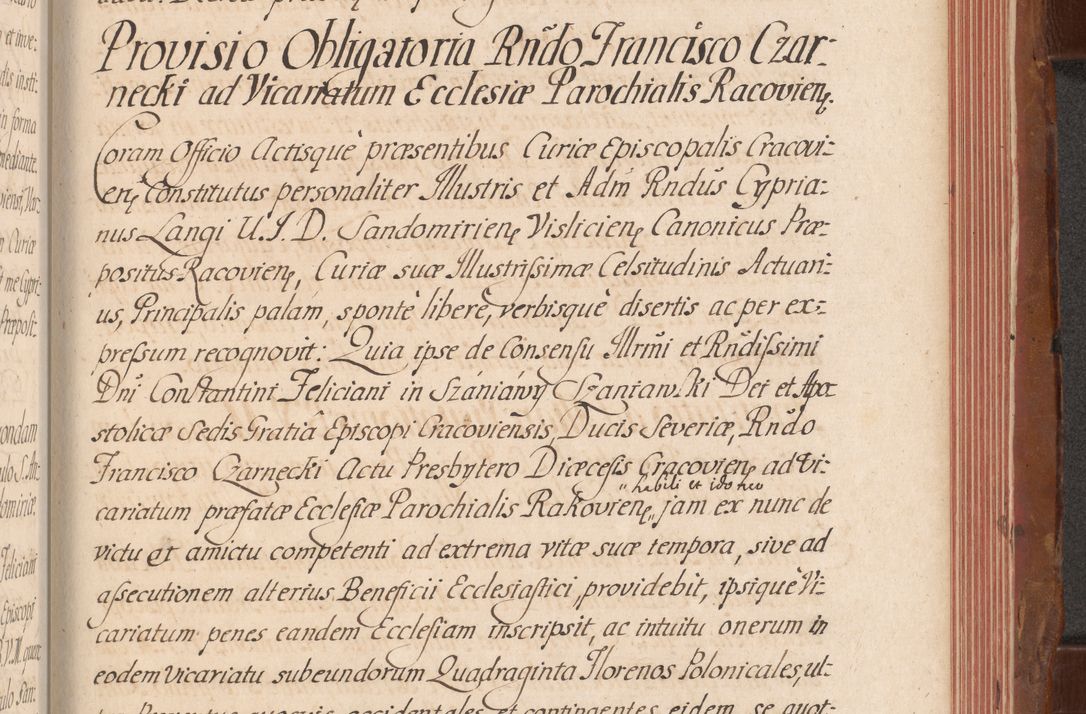 Provisio Obligatoria Rñdo Francisco Czar-
necki ad Vicariatum Ecclesiæ Parochialis Racovień.
Coram Officio Actisquè præsentibus Curiæ Episcopalis Cracovi-
eń. Constitutus personaliter Illustris et Adm̃ Rndũs Cypria-
nus Langi U. J. D. Sandomirień Vislicień Canonicus Præ-
positus Racovień, Curiæ suæ Illustrissimæ Celsitudinis Actuari-
us, Principalis palam, spontè liberè, verbisquè disertis ac per ex-
pressum recognovit: Quia ipse de Consensu Illrm̃i et Rñdissimi
Dnĩ Constantini Feliciani in Szániáwy Szaniawski Dei et Apo
stolicæ Sedis Gratiâ Episcopi Cracoviensis, Ducis Severiæ, Rñdo
Francisco Czarnecki Actu Presbytero Diæcesis Cracovień ad Vi-
" habili et idoneo
cariatum præfatæ Ecclesiæ Parochialis Rakovień " jam ex nunc de
victu et amictu competenti ad extrema vitæ suæ tempora, sive ad
assecutionem alterius Beneficii Ecclesiastici, providebit, ipsiquè Vi-
cariatum penes eandem Ecclesiam inscripsit, ac intuitu onerum in
eodem Vicariatu subeundorum Quadraginta Florenos Polonicales, ul-
accidentales et contingentes eidem, se quot-